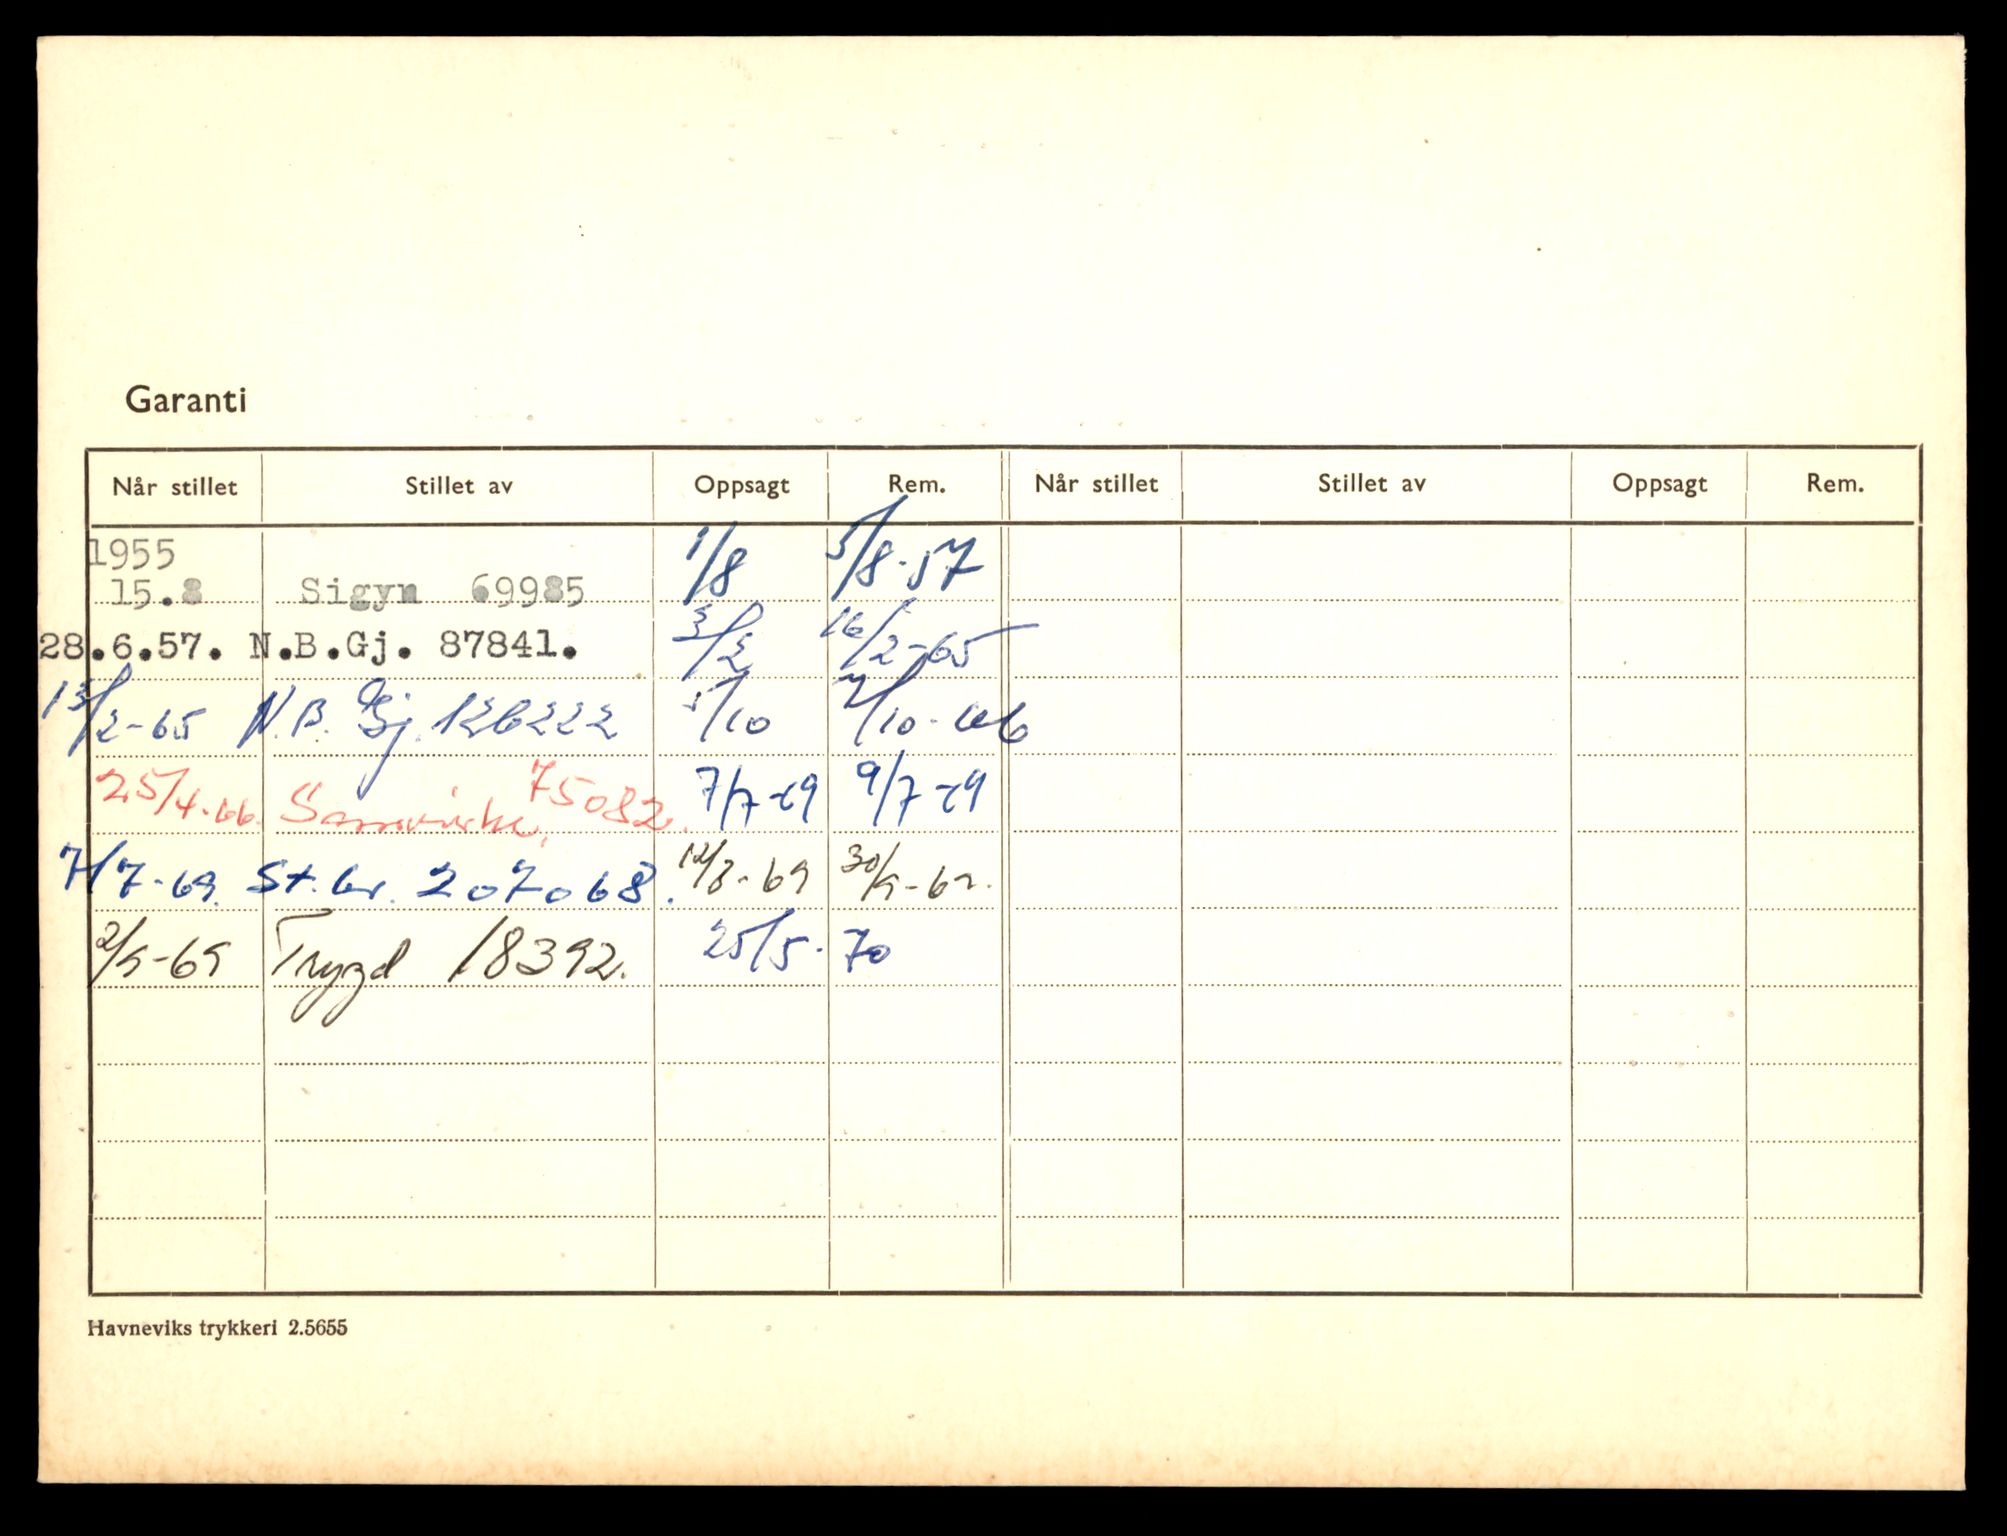 Garanti
Når stillet Stillet av Oppsagt Rem. Når stillet Stillet av Oppsagt Rem.
1955
15.8 Sigyn 69985 1/8 5/8-57
28.6.57. N.B.Gj. 87841. 3/2 16/2-65
13/2-65 N.B. Gj. 126222 5/10 7/10-66
25/4-66. Samvirke, 75082. 7/7-69 9/7-69
7/7-69. St.br. 207068. 12/8-69 30/9-69.
2/9-69 Trygd 18392. 25/5-70
Havneviks trykkeri 2.5655